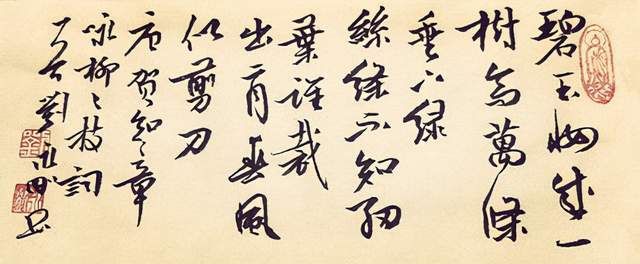 碧玉妝成一
樹高萬條
垂下緑
絲絛不知細
葉誰裁
出二月春風
似剪刀
唐賀知章
咏柳〻枝詞
劉永書